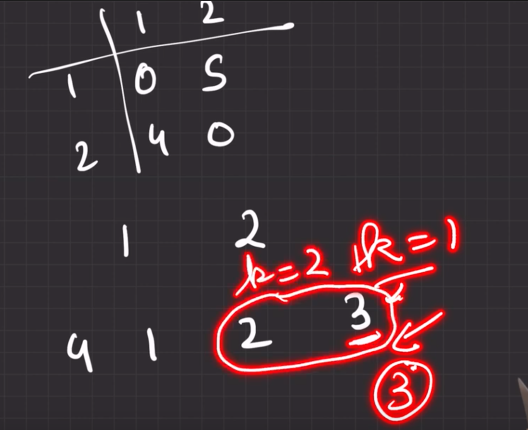 1 2
1 0 5
2 4 0
1 2
k=2 k=1
4 1 2 3
3